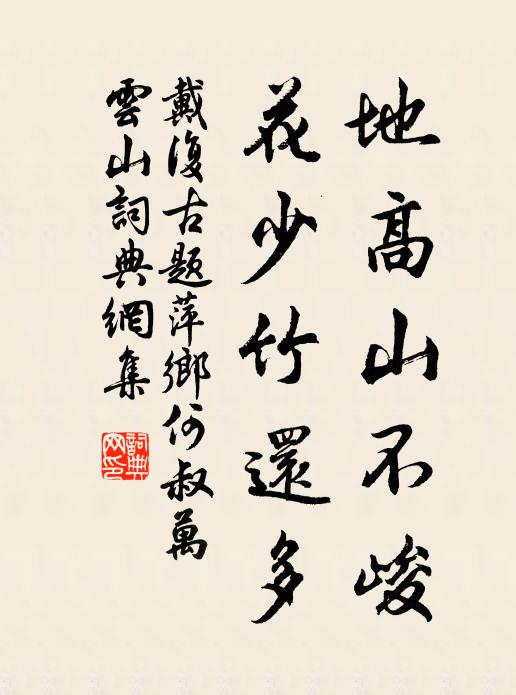 地高山不峻
花少竹還多
戴復古題萍鄉何叔萬
雲山詞典網集
詞典
网印